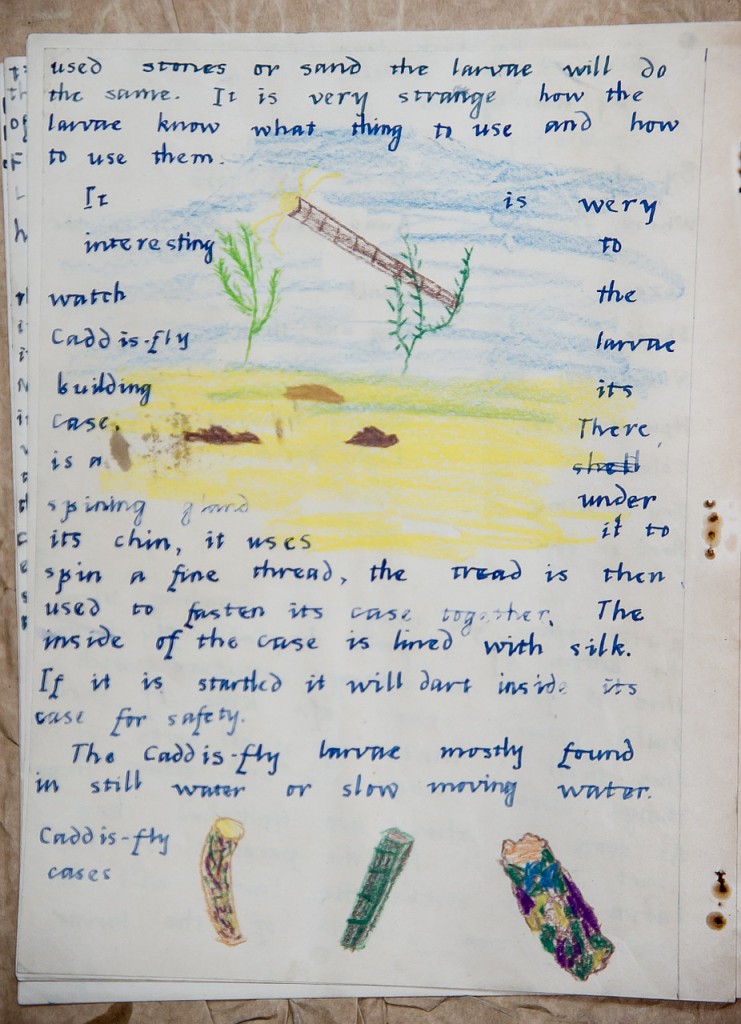 used stones or sand the larvae will do
the same. It is very strange how the
larvae know what thing to use and how
to use them.
It is wery
interesting to
watch the
Caddis-fly larvae
building its
case. There
is a shell
spining gland under
its chin, it uses it to
spin a fine thread, the tread is then
used to fasten its case together. The
inside of the case is lined with silk.
If it is startled it will dart inside its
case for safety.
The Caddis-fly larvae mostly found
in still water or slow moving water.
Caddis-fly
cases